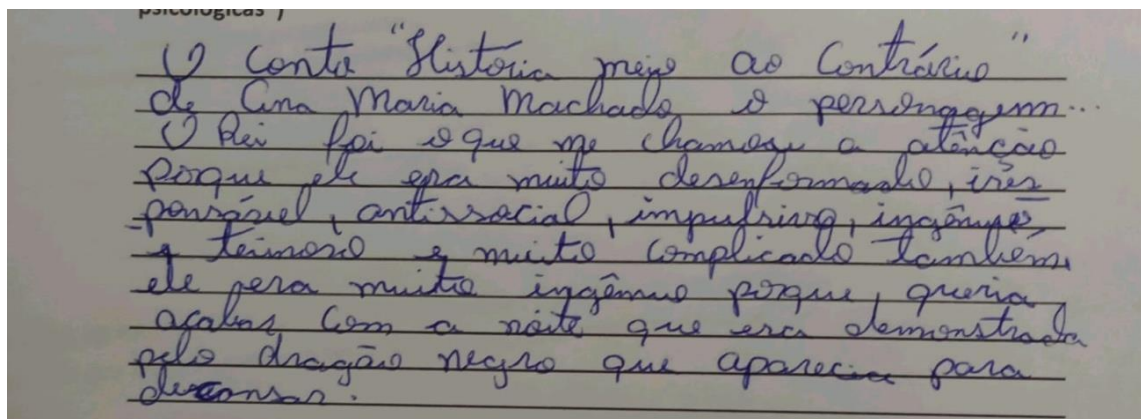 psicológicas")
O conto "História meio ao Contrário"
de Ana Maria Machado o personagem...
O Rei foi o que me chamou a atênção
porque ele era muito desenformado, irres
ponsável, antissocial, impulsivo, ingênuo
e teimoso e muito complicado também,
ele era muito ingênuo porque, queria
acabar com a noite que era demonstrada
pelo dragão negro que aparecia para
descansar.